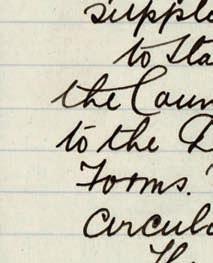 supple
to Sta
the Coun
to the D
Forms.
circula
Th